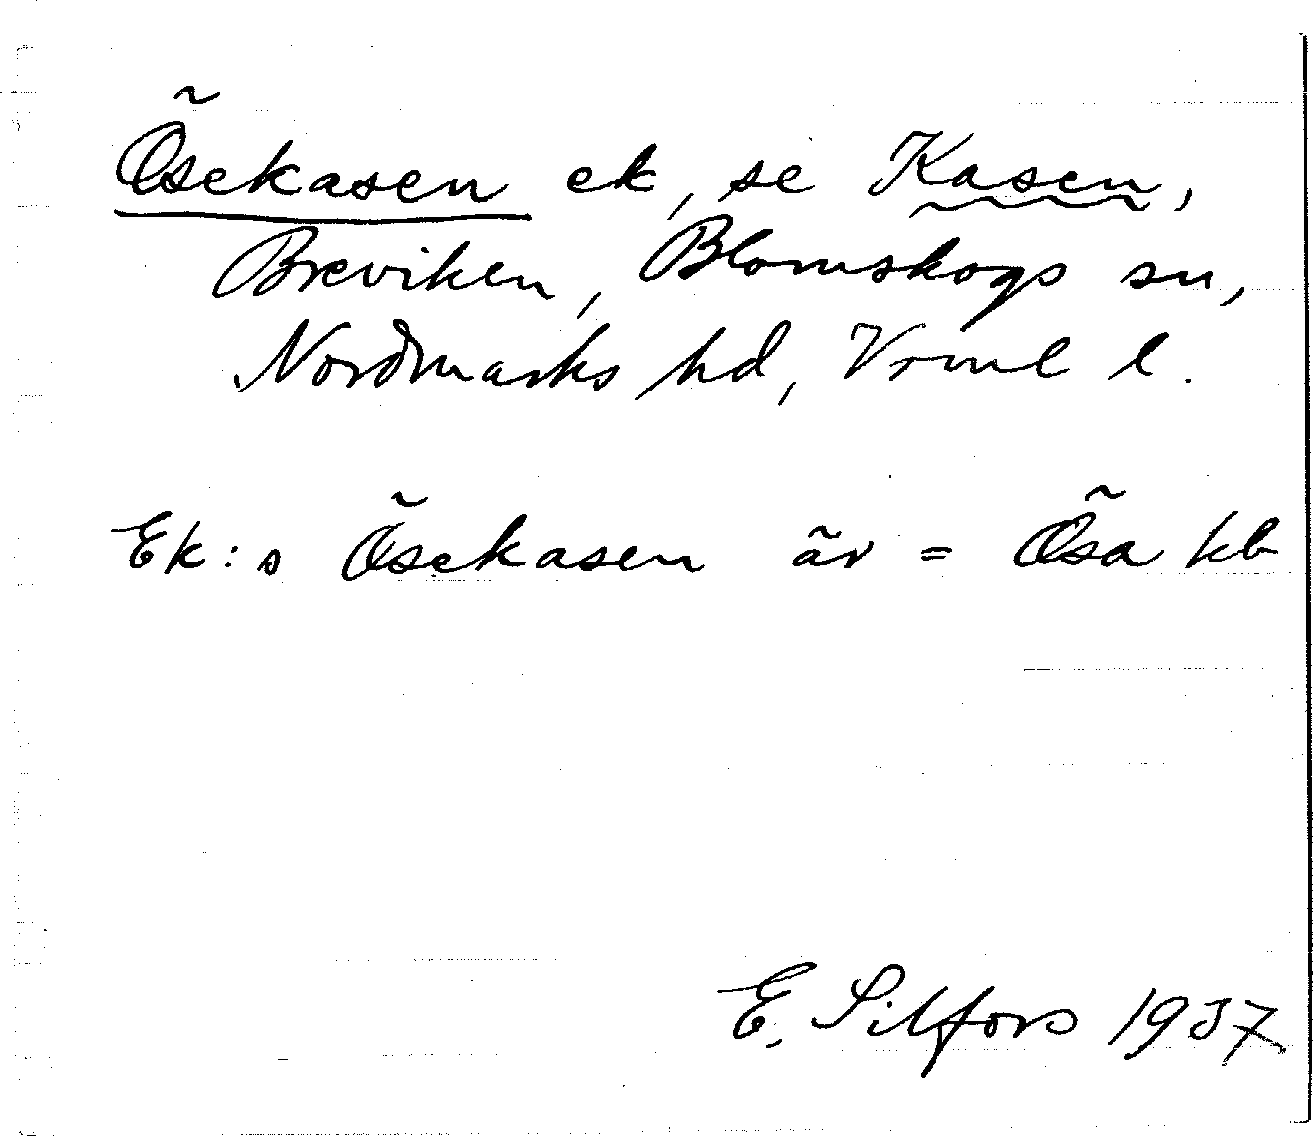 Ösekasen ek, se Kasen,
Breviken, Blomskogs sn,
Nordmarks hd, Vrml l.
Ek:s Ösekasen är = Ösa kb
E. Silfors 1937